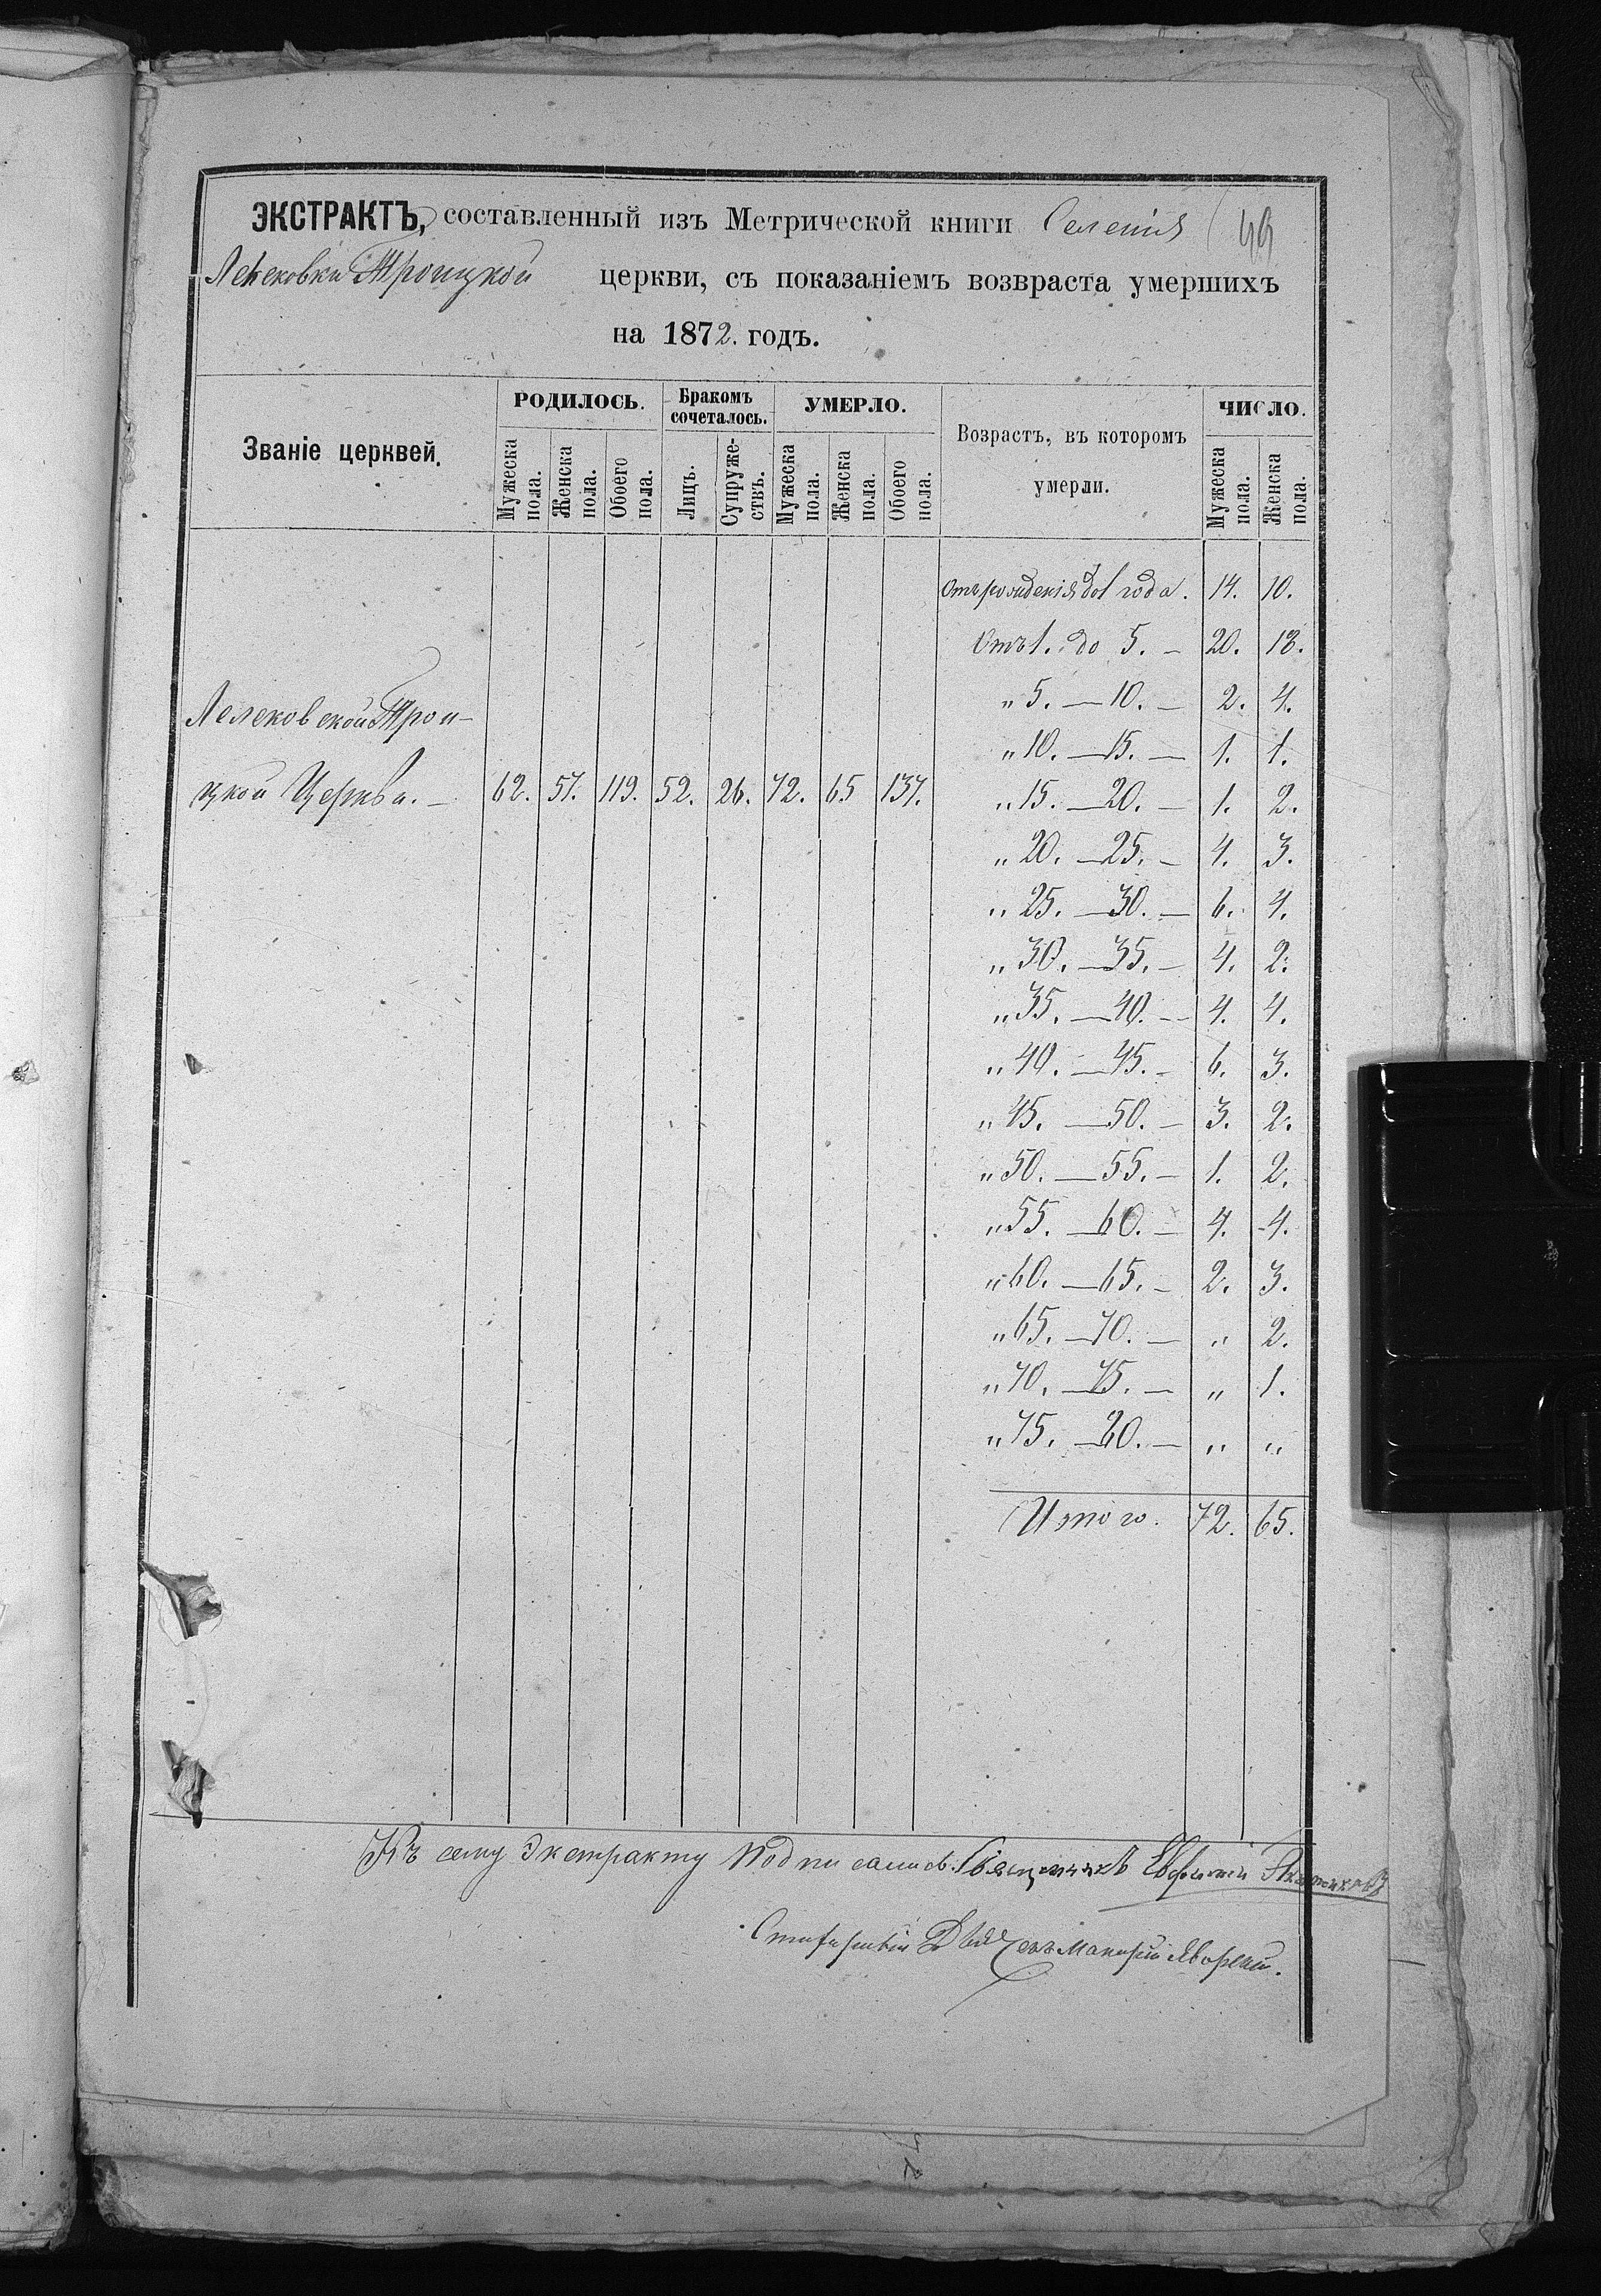 ЭКСТРАКТЪ, составленный изъ Метрической книги Селенія
Лелековки Троицкой церкви, съ показаніемъ возвраста умершихъ
на 1872. годъ.
Званіе церквей.
РОДИЛОСЬ.
Мужеска пола.
Женска пола.
Обоего пола.
Бракомъ сочеталось.
Лицъ.
Супружествъ.
УМЕРЛО.
Мужеска пола.
Женска пола.
Обоего пола.
Возрастъ, въ которомъ
умерли.
ЧИСЛО.
Мужеска пола.
Женска пола.
Отъ рожденія до 1 года. 14. 10.
Отъ 1. до 5. — 20. 18.
„ 5. — 10. — 2. 4.
Лелековской Трои-
„ 10. — 15. — 1. 1.
цкой Церкви. — 62. 57. 119. 52. 26. 72. 65 137.
„ 15. — 20. — 1. 2.
„ 20. — 25. — 4. 3.
„ 25. — 30. — 6. 4.
„ 30. — 35. — 4. 2.
„ 35. — 40. — 4. 4.
„ 40. — 45. — 6. 3.
„ 45. — 50. — 3. 2.
„ 50. — 55. — 1. 2.
„ 55. — 60. — 4. 4.
„ 60. — 65. — 2. 3.
„ 65. — 70. — „ 2.
„ 70. — 75. — „ 1.
„ 75. — 80. — „ „
Итого. 72. 65.
Къ сему Экстракту Подписались: Священникъ Евфимій
Стихарный Дьячекъ Макарій Яворскій.